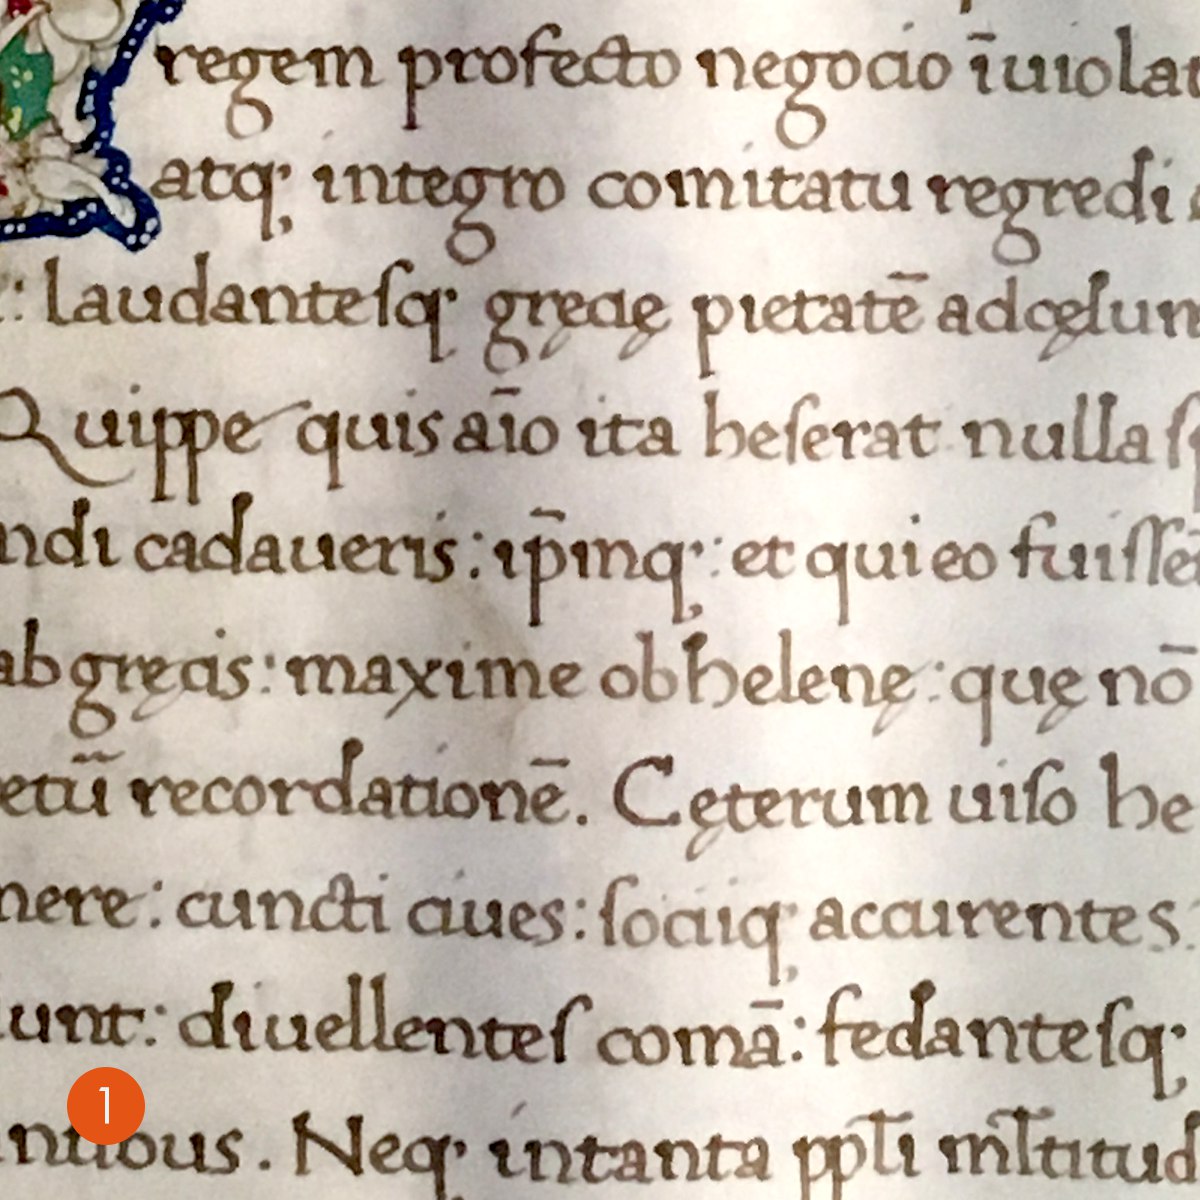 regem profecto negocio īuiolat
atq; integro comitatu regredi
: laudanteſq; gręcię pietatē adcęſun
Quippe quis aīo ita heſerat nulla ſp
ndi cadaueris: ip̄inq;: et qui eo fuiſſe
ab gręcis: maxime ob helenę: quę nō
etū recordationē. Cęterum uiſo he
nere: cuncti ciues: ſociiq; accurentes:
iunt: diuellenteſ comā: fedanteſq;
1
ntibus. Neq; in tanta pp̄li ml̄titud